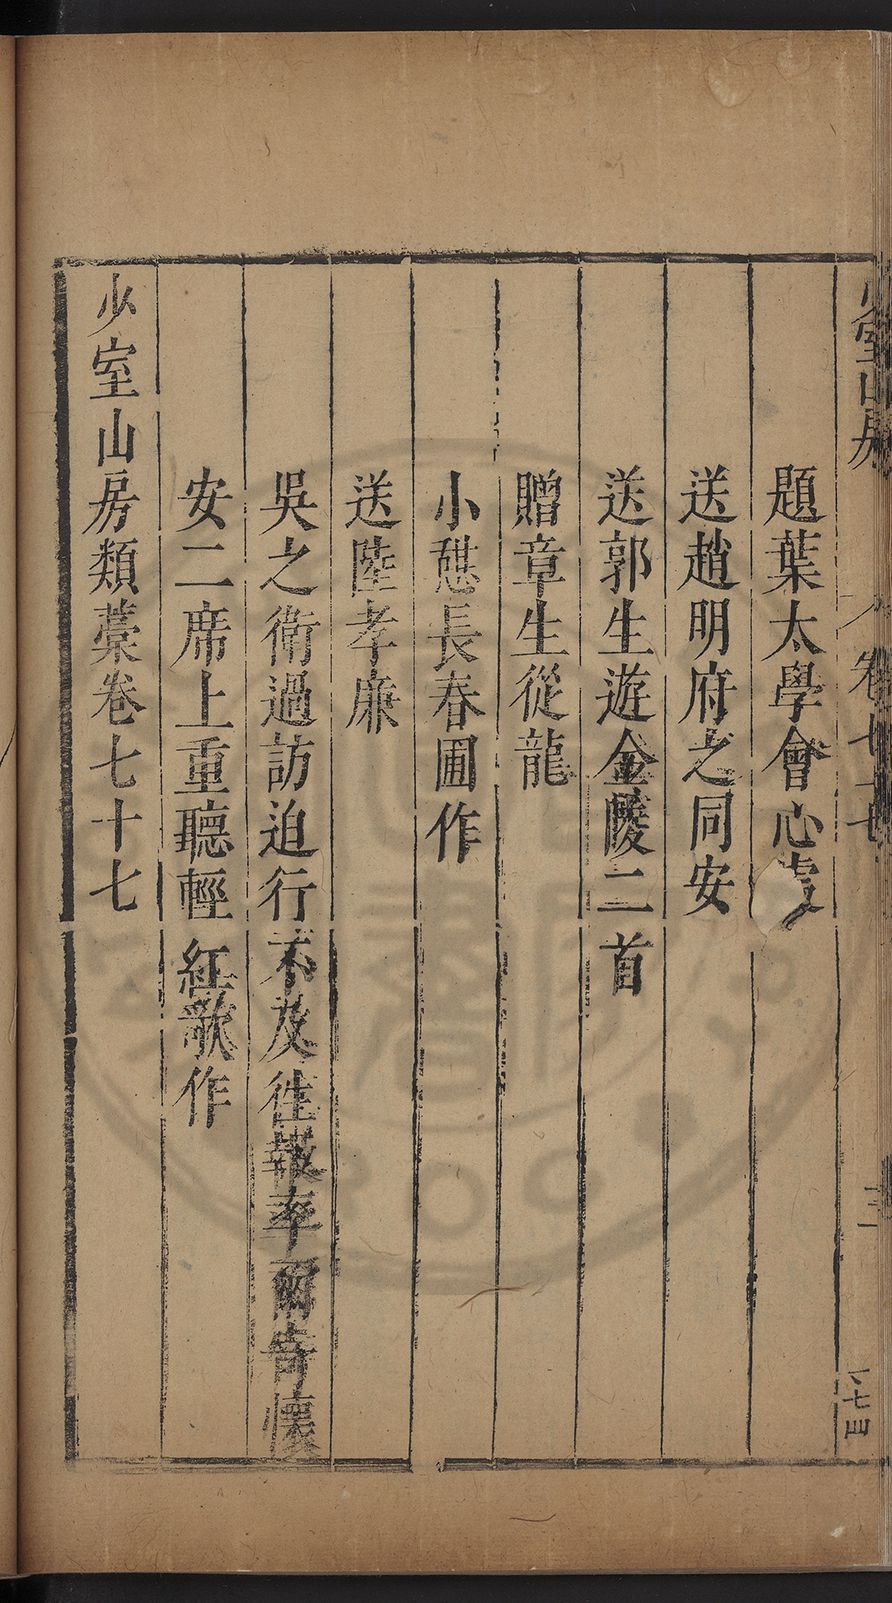 題葉太學會心處
送趙明府之同安
送郭生遊金陵二首
贈章生從龍
小憇長春圃作
送陸孝廉
吳之衛過訪迫行不及徃報率爾寄懷
安二席上重聽輕紅歌作
少室山房類藁卷七十七
室山房
卷七十七
三